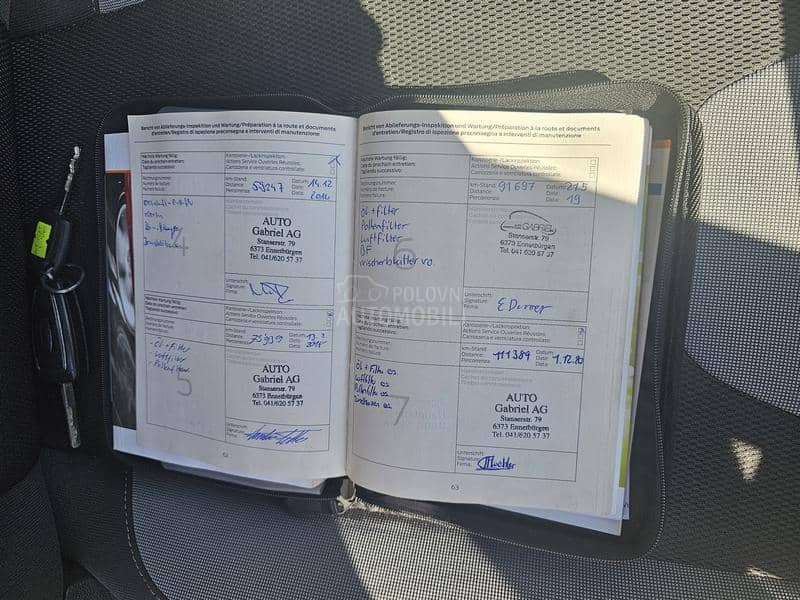 Bericht von Ablieferungs-Inspektion und Wartung/Préparation à la route et documents
d'entretien/Registro di ispezione preconsegna e interventi di manutenzione
Nächste Wartung fällig:
Date du prochain entretien:
Tagliando successivo:
Karosserie-/Lackinspektion:
Actions Service Ouvertes Réalisées:
Carrozzeria e verniciatura controllate:
Rechnungsnummer:
Numéro de facture:
Numero di fattura:
km-Stand: Datum: 14.12
Distance: 59247 Date: 2016
Percorrenza: Data:
4
AUTO
Gabriel AG
Stanserstr. 79
6373 Ennetbürgen
Tel. 041/620 57 37
Unterschrift:
Signature:
Firma:
Nächste Wartung fällig:
Date du prochain entretien:
Tagliando successivo:
Karosserie-/Lackinspektion:
Actions Service Ouvertes Réalisées:
Carrozzeria e verniciatura controllate:
Rechnungsnummer:
Numéro de facture:
Numero di fattura:
km-Stand: Datum:
Distance: 75939 Date:
Percorrenza: Data:
- Öl + filter
- Luftfilter
- Pollenfilter
5
AUTO
Gabriel AG
Stanserstr. 79
6373 Ennetbürgen
Tel. 041/620 57 37
Unterschrift:
Signature:
Firma:
Bericht von Ablieferungs-Inspektion und Wartung/Préparation à la route et documents
d'entretien/Registro di ispezione preconsegna e interventi di manutenzione
Nächste Wartung fällig:
Date du prochain entretien:
Tagliando successivo:
Karosserie-/Lackinspektion:
Actions Service Ouvertes Réalisées:
Carrozzeria e verniciatura controllate:
Rechnungsnummer:
Numéro de facture:
Numero di fattura:
km-Stand: Datum: 21.5
Distance: 91697 Date: 19
Percorrenza: Data:
Öl + filter
Pollenfilter
Luftfilter
BF
6
GABRIEL
Stanserstr. 79
6373 Ennetbürgen
Tel. 041 620 57 37
Unterschrift:
Signature:
Firma:
POLOVNI
AUTOMOBILI
Nächste Wartung fällig:
Date du prochain entretien:
Tagliando successivo:
Karosserie-/Lackinspektion:
Actions Service Ouvertes Réalisées:
Carrozzeria e verniciatura controllate:
Rechnungsnummer:
Numéro de facture:
Numero di fattura:
km-Stand: Datum:
Distance: 111389 Date: 1.12.20
Percorrenza: Data:
Öl + Filter es
Luftfilter es
Pollenfilter es
7
AUTO
Gabriel AG
Stanserstr. 79
6373 Ennetbürgen
Tel. 041/620 57 37
Unterschrift:
Signature:
Firma:
63